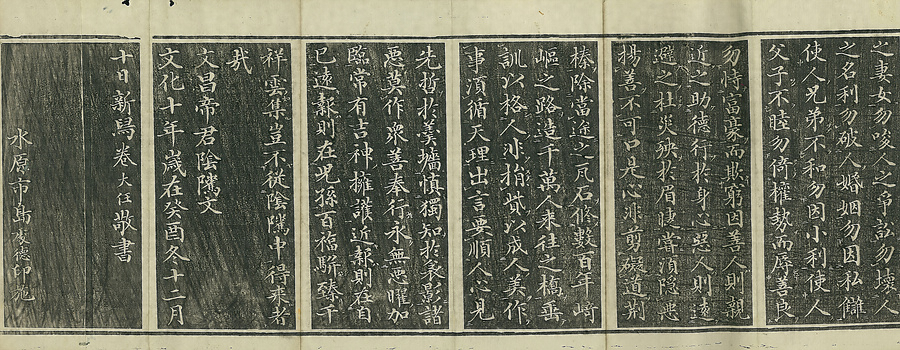 之妻女勿唆人之爭訟勿壞人
之名利勿破人婚姻勿因私讎
使人兄弟不和勿因小利使人
父子不睦勿倚權勢而辱善良
勿恃富豪而欺窮困善人則親
近之助德行於身心惡人則遠
避之杜災殃於眉睫常須隱惡
揚善不可口是心非剪礙道荊
榛除當途之瓦石修數百年崎
嶇之路造千萬人來往之橋垂
訓以格人非捐貲以成人美作
事須循天理出言要順人心見
先哲於羹墻慎獨知於衾影諸
惡莫作衆善奉行永無惡曜加
臨常有吉神擁護近報則在自
己遠報則在兒孫百福駢臻千
祥雲集豈不從陰隲中得來者
哉
文昌帝君陰隲文
文化十年歲在癸酉冬十二月
十日新舄卷大任敬書
水原市島德印施